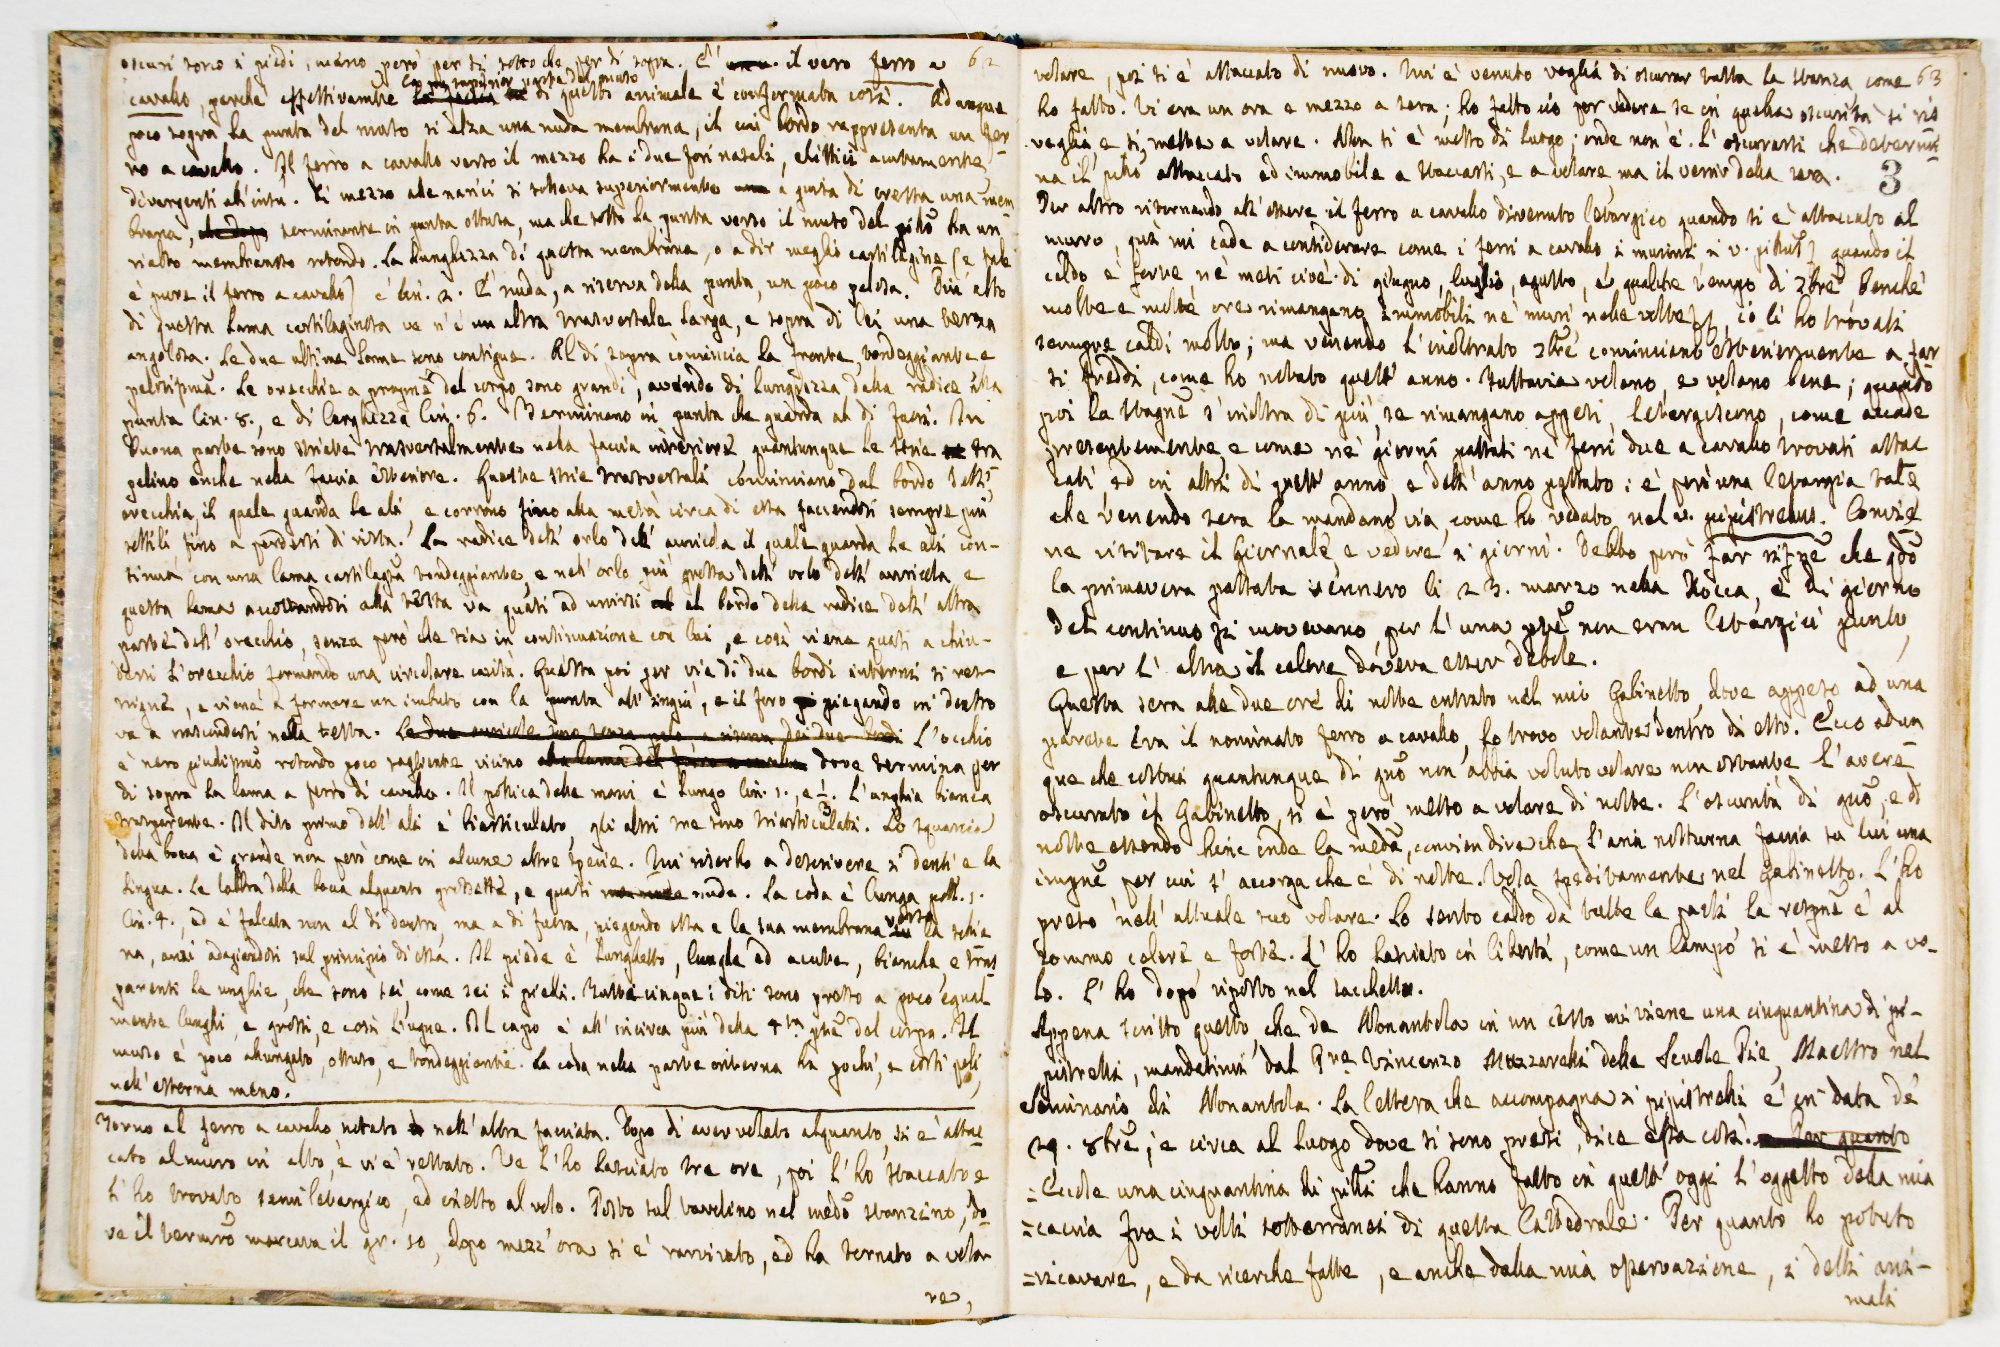 oscuri sono i piedi, meno però per di sotto che per di sopra. E' il vero ferro a 62
cavallo, perchè effettivamente la superior parte del muso di questo animale è conformata così. Adunque
poco sopra la punta del muso si alza una nuda membrana, il cui bordo rappresenta un fer-
ro a cavallo. Il ferro a cavallo verso il mezzo ha i due fori nasali, elittici acutamente
divergenti all'insù. In mezzo alle narici si solleva superiormente a guisa di cresta una mem-
brana, terminante in punta ottusa, ma che sotto la punta verso il muso del pillo ha un
rialto membranoso rotondo. La lunghezza di questa membrana, o a dir meglio cartilagine (e tale
è pure il ferro a cavallo) è lin. 2. E' nuda, a riserva della punta, un poco pelosa. Più alto
di questa lama cartilaginosa ve n'è un altra trasversale larga, e sopra di lei una terza
angolosa. Le due ultime lame sono contigue. Al di sopra comincia la fronte, tondeggiante e
pelosissima. Le orecchie a proporne del corpo sono grandi, avendo di lunghezza dalla radice alla
punta lin. 8., e di larghezza lin. 6. Terminano in punta che guarda al di fuori. In
buona parte sono striate trasversalmente nella faccia interiore quantunque le strie tra
pelino anche nella faccia esteriore. Queste strie trasversali cominciano dal bordo dell'
orecchia, il quale guarda le ali, e corrono fino alla metà circa di essa facendosi sempre più
sottili fino a perdersi di vista. La radice dell'orlo dell'auricola il quale guarda le ali con-
tinua con una lama cartilaga tondeggiante, e nell'orlo più grossa dell'orlo dell'auricola, e
questa lama accostandosi alla testa va quasi ad unirsi al bordo della radice dell'altra
parte dell'orecchio, senza però che sia in continuazione con lui, e così viene quasi a chiu-
dersi l'orecchio formando una circolare cavità. Questa poi per via di due bordi interni si res-
tringe, e viene a formare un imbuto con la punta all'ingiù, e il foro piegando in dentro
va a nascondersi nella testa. Le due auricole sono senza pelo a riserva dei due bordi L'occhio
è nero picolissimo rotondo poco sagliente vicino dove termina per
di sopra la lama a ferro di cavallo. Il pollice delle mani è lungo lin. 1., e ½. L'unghia bianca
trasparente. Il dito primo dell'ali è biarticulato, gli altri tre sono triarticulati. Lo squarcio
della bocca è grande non però come in alcune altre specie. Mi riserbo a descrivere i denti e la
lingua. Le labbra della bocca alquanto grossette, e quasi nude. La coda è lunga poll. 1.
lin. 4., ed è falcata non al di dentro, ma a di fuora, piegando essa e la sua membrana verso la schie
na, anzi adagiandosi sul principio di essa. Il piede è lunghetto, lunghe ed acute, bianche, e tras
parenti le unghie, che sono sei, come sei i piedi. Tutte cinque i diti sono presso a poco egual
mente lunghi, e grossi, e così l'ugne. Il capo è all'incirca più della 4ta pte del corpo. Il
muso è poco allungato, ottuso, e tondeggiante. La coda nella parte interna ha pochi, e corti peli,
nell'esterna meno.
Torno al ferro a cavallo notato nell'altra facciata. Dopo di aver volato alquanto, si è attac
cato al muro in alto, e vi è restato. Ve l'ho lasciato tre ore, poi l'ho staccato e
l'ho trovato semiletargico, ed inetto al volo. Posto sul tavolino nel medo stanzino, do-
ve il termro marcava il gr. 10, dopo mezz'ora si è ravvivato, ed ha tornato a vola-
re,
volare, poi si è attaccato di nuovo. Mi è venuto voglia di oscurar tutta la stanza come 63
ho fatto. Vi era un ora e mezzo a sera; ho fatto ciò per vedere se in quella oscurità si ris
veglia e si mette a volare. Non si è mosso di luogo; onde non è l'oscurarsi che determi-
na il pillo attaccato ed immobile a staccarsi, e a volare, ma il venir della sera. 3
Per altro ritornando all'essere il ferro a cavallo divenuto letargico quando si è attaccato al
muro, qui mi cade a considerare come i ferri a cavallo i murini i v. pillus) quando il
caldo è forte, nè mesi cioè di giugno, luglio, agosto, e qualche tempo di 7bre benchè
molte e molte ore rimangano immobili nè muri, nelle volte, io li ho trovati
sempre caldi molto; ma venendo l'inoltrato 7bre cominciano esteriormente a far
si freddi, come ho notato quest'anno. Tuttavia volano, e volano bene; quando
poi la stagne s'inoltra di più, se rimangano appesi, letargiscono, come accade
presentemente, e come nè giorni passati nè ferri due a cavallo trovati attac
cati, ed in altri di quest'anno, e dell'anno passato: è però una letargia tale
che venendo sera la mandano via, come ho veduto nel v. pipistrellus. Convie
ne visitare il Giornale, e vedere i giorni. Debbo però far rifne che qdo
la primavera passata vennero li 23. marzo nella Rocca, e di giorno
del continuo si movevano per l'una pte non eran letargici punto,
e per l'altra il calore doveva esser debole.
Questa sera alle due ore di notte entrato nel mio Gabinetto, dove appeso ad una
parete era il nominato ferro a cavallo, lo trovo volante dentro di esso. Ecco adun
que che costui quantunque di gno non abbia voluto volare non ostante l'avere
oscurato il Gabinetto, si è però messo a volare di notte. L'oscurità di gno, e di
notte essendo hinc inde la meda, convien dire che l'aria notturna faccia su lui una
impne per cui s'accorga che è di notte. Vola speditamente nel gabinetto. L'ho
preso nell'attuale suo volare. Lo sento caldo da tutte le parti la respne è al
sommo celere, e forte. L'ho lasciato in libertà, come un lampo si è messo a vo-
lo. L'ho dopo riposto nel sacchetto.
Appena scritto questo, che da Nonantola in un cesto mi viene una cinquantina di pi-
pistrelli, mandatimi dal Pre Vincenzo Mazzarelli delle Scuole Pie, Maestro nel
Seminario di Nonantola. La lettera che accompagna i pipistrelli è in data de
29. 8bre; e circa al luogo dove si sono presi, dice essa così. Per quanto
= Eccole una cinquantina di pilli che hanno fatto in quest'oggi l'oggetto della mia
= caccia fra i volti sotterranei di questa Cattedrale. Per quanto ho potuto
= ricavare, e da ricerche fatte, e anche dalla mia osservazione, i detti ani-
mali